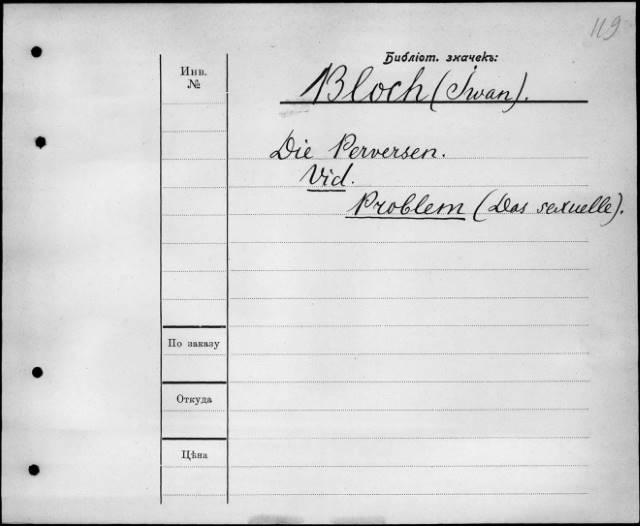 119
Библіот. значекъ:
Инв.
№
Bloch (Iwan).
Die Perversen.
Vid.
Problem (Das sexuelle).
По заказу
Откуда
Цѣна